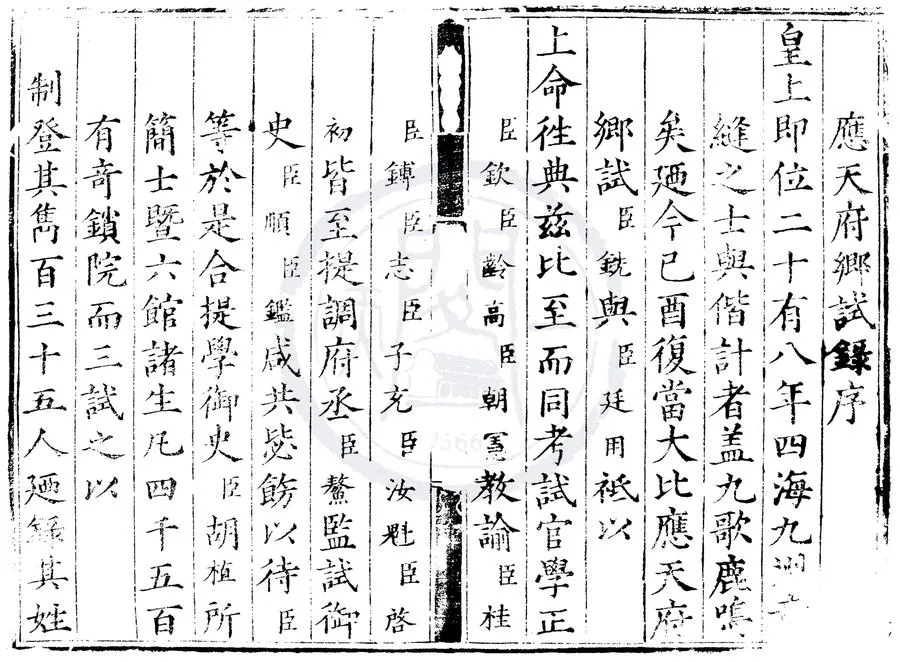 應天府鄉試錄序
皇上即位二十有八年四海九洲
縫之士與偕計者盖九歌鹿鳴
矣廼今己酉復當大比應天府
鄉試臣銑與臣廷用祗以
上命徃典兹比至而同考試官學正
臣欽臣齡高臣朝憲教諭臣桂
臣鏄臣志臣子充臣汝魁臣啓
初皆至提調府丞臣鰲監試御
史臣順臣鑑咸共毖飭以待臣
等於是合提學御史臣胡植所
簡士暨六館諸生凡四千五百
有奇鎖院而三試之以
制登其雋百三十五人廼錄其姓